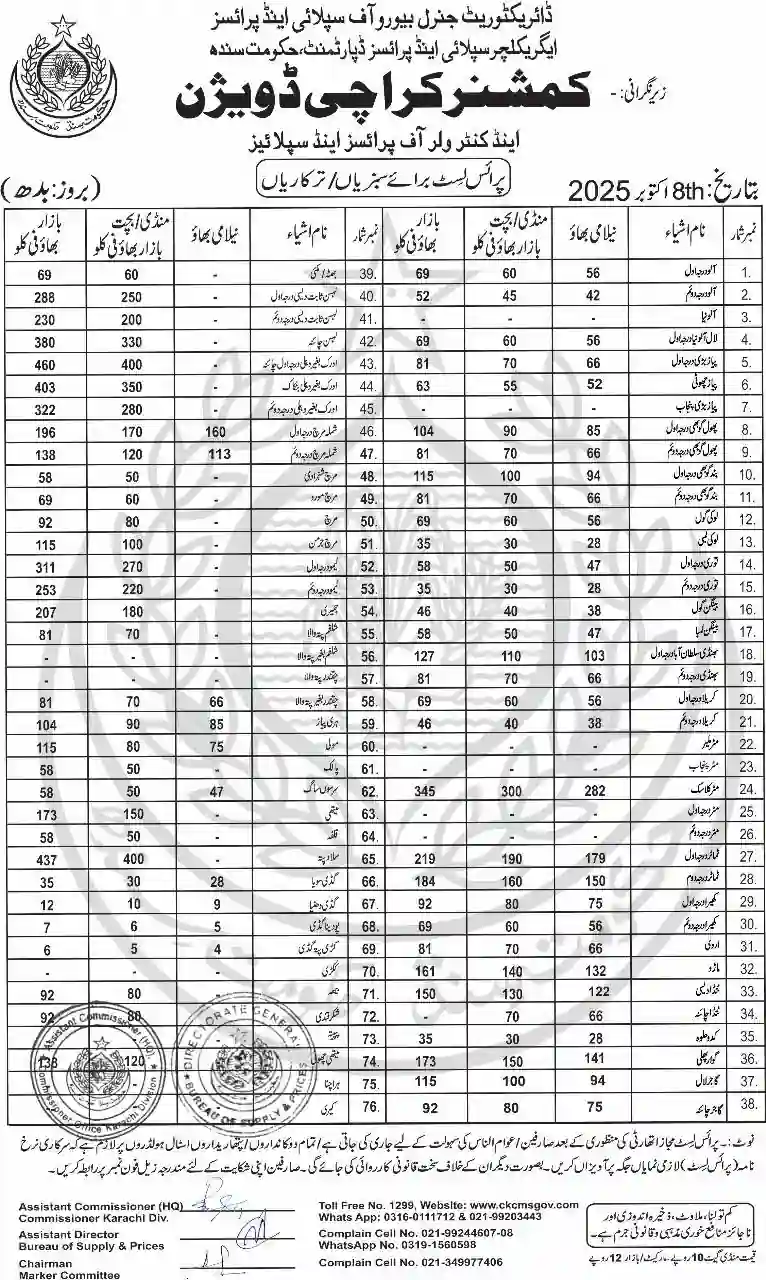 ڈائریکٹوریٹ جنرل بیورو آف سپلائی اینڈ پرائسز
ایگریکلچر سپلائی اینڈ پرائسز ڈپارٹمنٹ، حکومت سندھ
زیر نگرانی :-
کمشنر کراچی ڈویژن
اینڈ کنٹرولر آف پرائسز اینڈ سپلائیز
بتاریخ: 8th اکتوبر 2025
پرائس لسٹ برائے سبزیاں / ترکاریاں
(بروز: بدھ)
نمبر شمار نام اشیاء نیلامی بھاؤ منڈی/بچت بازار بھاؤ فی کلو بازار بھاؤ فی کلو نمبر شمار نام اشیاء نیلامی بھاؤ منڈی/بچت بازار بھاؤ فی کلو بازار بھاؤ فی کلو
1. آلو درجہ اول 56 60 69 39. بھٹہ/مکئی - 60 69
2. آلو درجہ دوئم 42 45 52 40. لہسن ثابت دیسی درجہ اول - 250 288
3. آلو نیا - - - 41. لہسن ثابت دیسی درجہ دوئم - 200 230
4. لال آلو نیا درجہ اول 56 60 69 42. لہسن چائنہ - 330 380
5. پیاز بڑی درجہ اول 66 70 81 43. ادرک بغیر دھلی درجہ اول چائنہ - 400 460
6. پیاز چھوٹی 52 55 63 44. ادرک بغیر دھلی بنکاک - 350 403
7. پیاز بڑی پنجاب - - - 45. ادرک بغیر دھلی درجہ دوئم - 280 322
8. پھول گوبھی درجہ اول 85 90 104 46. شملہ مرچ درجہ اول 160 170 196
9. پھول گوبھی درجہ دوئم 66 70 81 47. شملہ مرچ درجہ دوئم 113 120 138
10. بند گوبھی درجہ اول 94 100 115 48. مرچ شہزادی - 50 58
11. بند گوبھی درجہ دوئم 66 70 81 49. مرچ مورو - 60 69
12. لوکی گول 56 60 69 50. مرچ - 80 92
13. لوکی لمبی 28 30 35 51. مرچ جرمن - 100 115
14. توری درجہ اول 47 50 58 52. لیمو درجہ اول - 270 311
15. توری درجہ دوئم 28 30 35 53. لیمو درجہ دوئم - 220 253
16. بینگن گول 38 40 46 54. - 180 207
17. بینگن لمبا 47 50 58 55. شلغم پتہ والا - 70 81
18. بھنڈی سلطان آباد درجہ اول 103 110 127 56. شلغم بغیر پتہ والا - - -
19. بھنڈی درجہ دوئم 66 70 81 57. چقندر پتہ والا - - -
20. کریلا درجہ اول 56 60 69 58. چقندر بغیر پتہ والا 66 70 81
21. کریلا درجہ دوئم 38 40 46 59. ہری پیاز 85 90 104
22. مٹر ملیر - - - 60. مولی 75 80 115
23. مٹر پنجاب - - - 61. پالک - 50 58
24. مٹر کلاسک 282 300 345 62. سرسوں ساگ 47 50 58
25. مٹر درجہ اول - - - 63. میتھی - 150 173
26. مٹر درجہ دوئم - - - 64. قلفہ - 50 58
27. ٹماٹر درجہ اول 179 190 219 65. سلاد پتہ - 400 437
28. ٹماٹر درجہ دوم 150 160 184 66. گڈی سویا 28 30 35
29. کھیرا درجہ اول 75 80 92 67. گڈی دھنیا 9 10 12
30. کھیرا درجہ دوئم 56 60 69 68. پودینا گڈی 5 6 7
31. اروی 66 70 81 69. کڑی پتہ گڈی 4 5 6
32. 132 140 161 70. ککڑی - - -
33. ٹنڈا دیسی 122 130 150 71. - 80 92
34. ٹنڈا چائنہ 66 70 - 72. شکرقندی - 80 92
35. کدو حلوہ 28 30 35 73. پپیتہ - - -
36. گوار پھلی 141 150 173 74. میتھی پھول - 120 138
37. گاجر لال 94 100 115 75. ہرا چنا - -
38. گاجر چائنہ 75 80 92 76. کیری
DIRECTORATE GENERAL
BUREAU OF SUPPLY & PRICES
Assistant Commissioner (HQ)
Commissioner Office Karachi Division
نوٹ:- پرائس لسٹ مجاز اتھارٹی کی منظوری کے بعد صارفین / عوام الناس کی سہولت کے لیے جاری کی جاتی ہے / تمام دوکانداروں / پتھاریداروں اسٹال ہولڈروں پر لازم ہے کہ سرکاری نرخ
نامہ (پرائس لسٹ) لازمی نمایاں جگہ پر آویزاں کریں۔ بصورت دیگر ان کے خلاف سخت قانونی کارروائی کی جائے گی۔ صارفین اپنی شکایت کے لئے مندرجہ زیل فون نمبر پر رابطہ کریں۔
Assistant Commissioner (HQ)
Commissioner Karachi Div.
Assistant Director
Bureau of Supply & Prices
Chairman
Marker Committee
Toll Free No. 1299, Website: www.ckcmsgov.com
Whats App: 0316-0111712 & 021-99203443
Complain Cell No. 021-99244607-08
WhatsApp No. 0319-1560598
Complain Cell No. 021-349977406
کم تولنا، ملاوٹ، ذخیرہ اندوزی اور
ناجائز منافع خوری مذہبی و قانونی جرم ہے۔
قیمت منڈی گیٹ 10 روپے - مارکیٹ/بازار 12 روپے